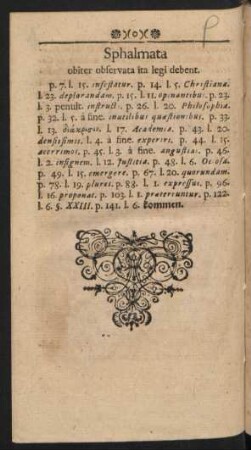 Sphalmata
obiter observata ita legi debent.
p. 7. l. 15. infestatur. p. 14. l. 5. Christianæ.
l. 23. deplorandam. p. 15. l. 11. opinantibus. p. 23.
l. 3. penult. instructi. p. 26. l. 20. Philosophiæ.
p. 32. l. 5. à fine. inutilibus quæstionibus. p. 33.
l. 13. l. 17. Academiæ. p. 43. l. 20.
densissimis. l. 4. à fine. experiri. p. 44. l. 15.
acerrimos. p. 45. l. 3. à fine. angustias. p. 46.
l. 2. insignem. l. 12. Justitiæ. p. 48. l. 6.
p. 49. l. 15. emergere. p. 67. l. 20. quorundam.
p. 78. l. 19. plures. p. 88. l. 1. expressus. p. 96.
l. 16. proponas. p. 103. l. 1. prætereuntur. p. 122.
l. 6. §. XXIII. p. 141. l. 6. kommen.